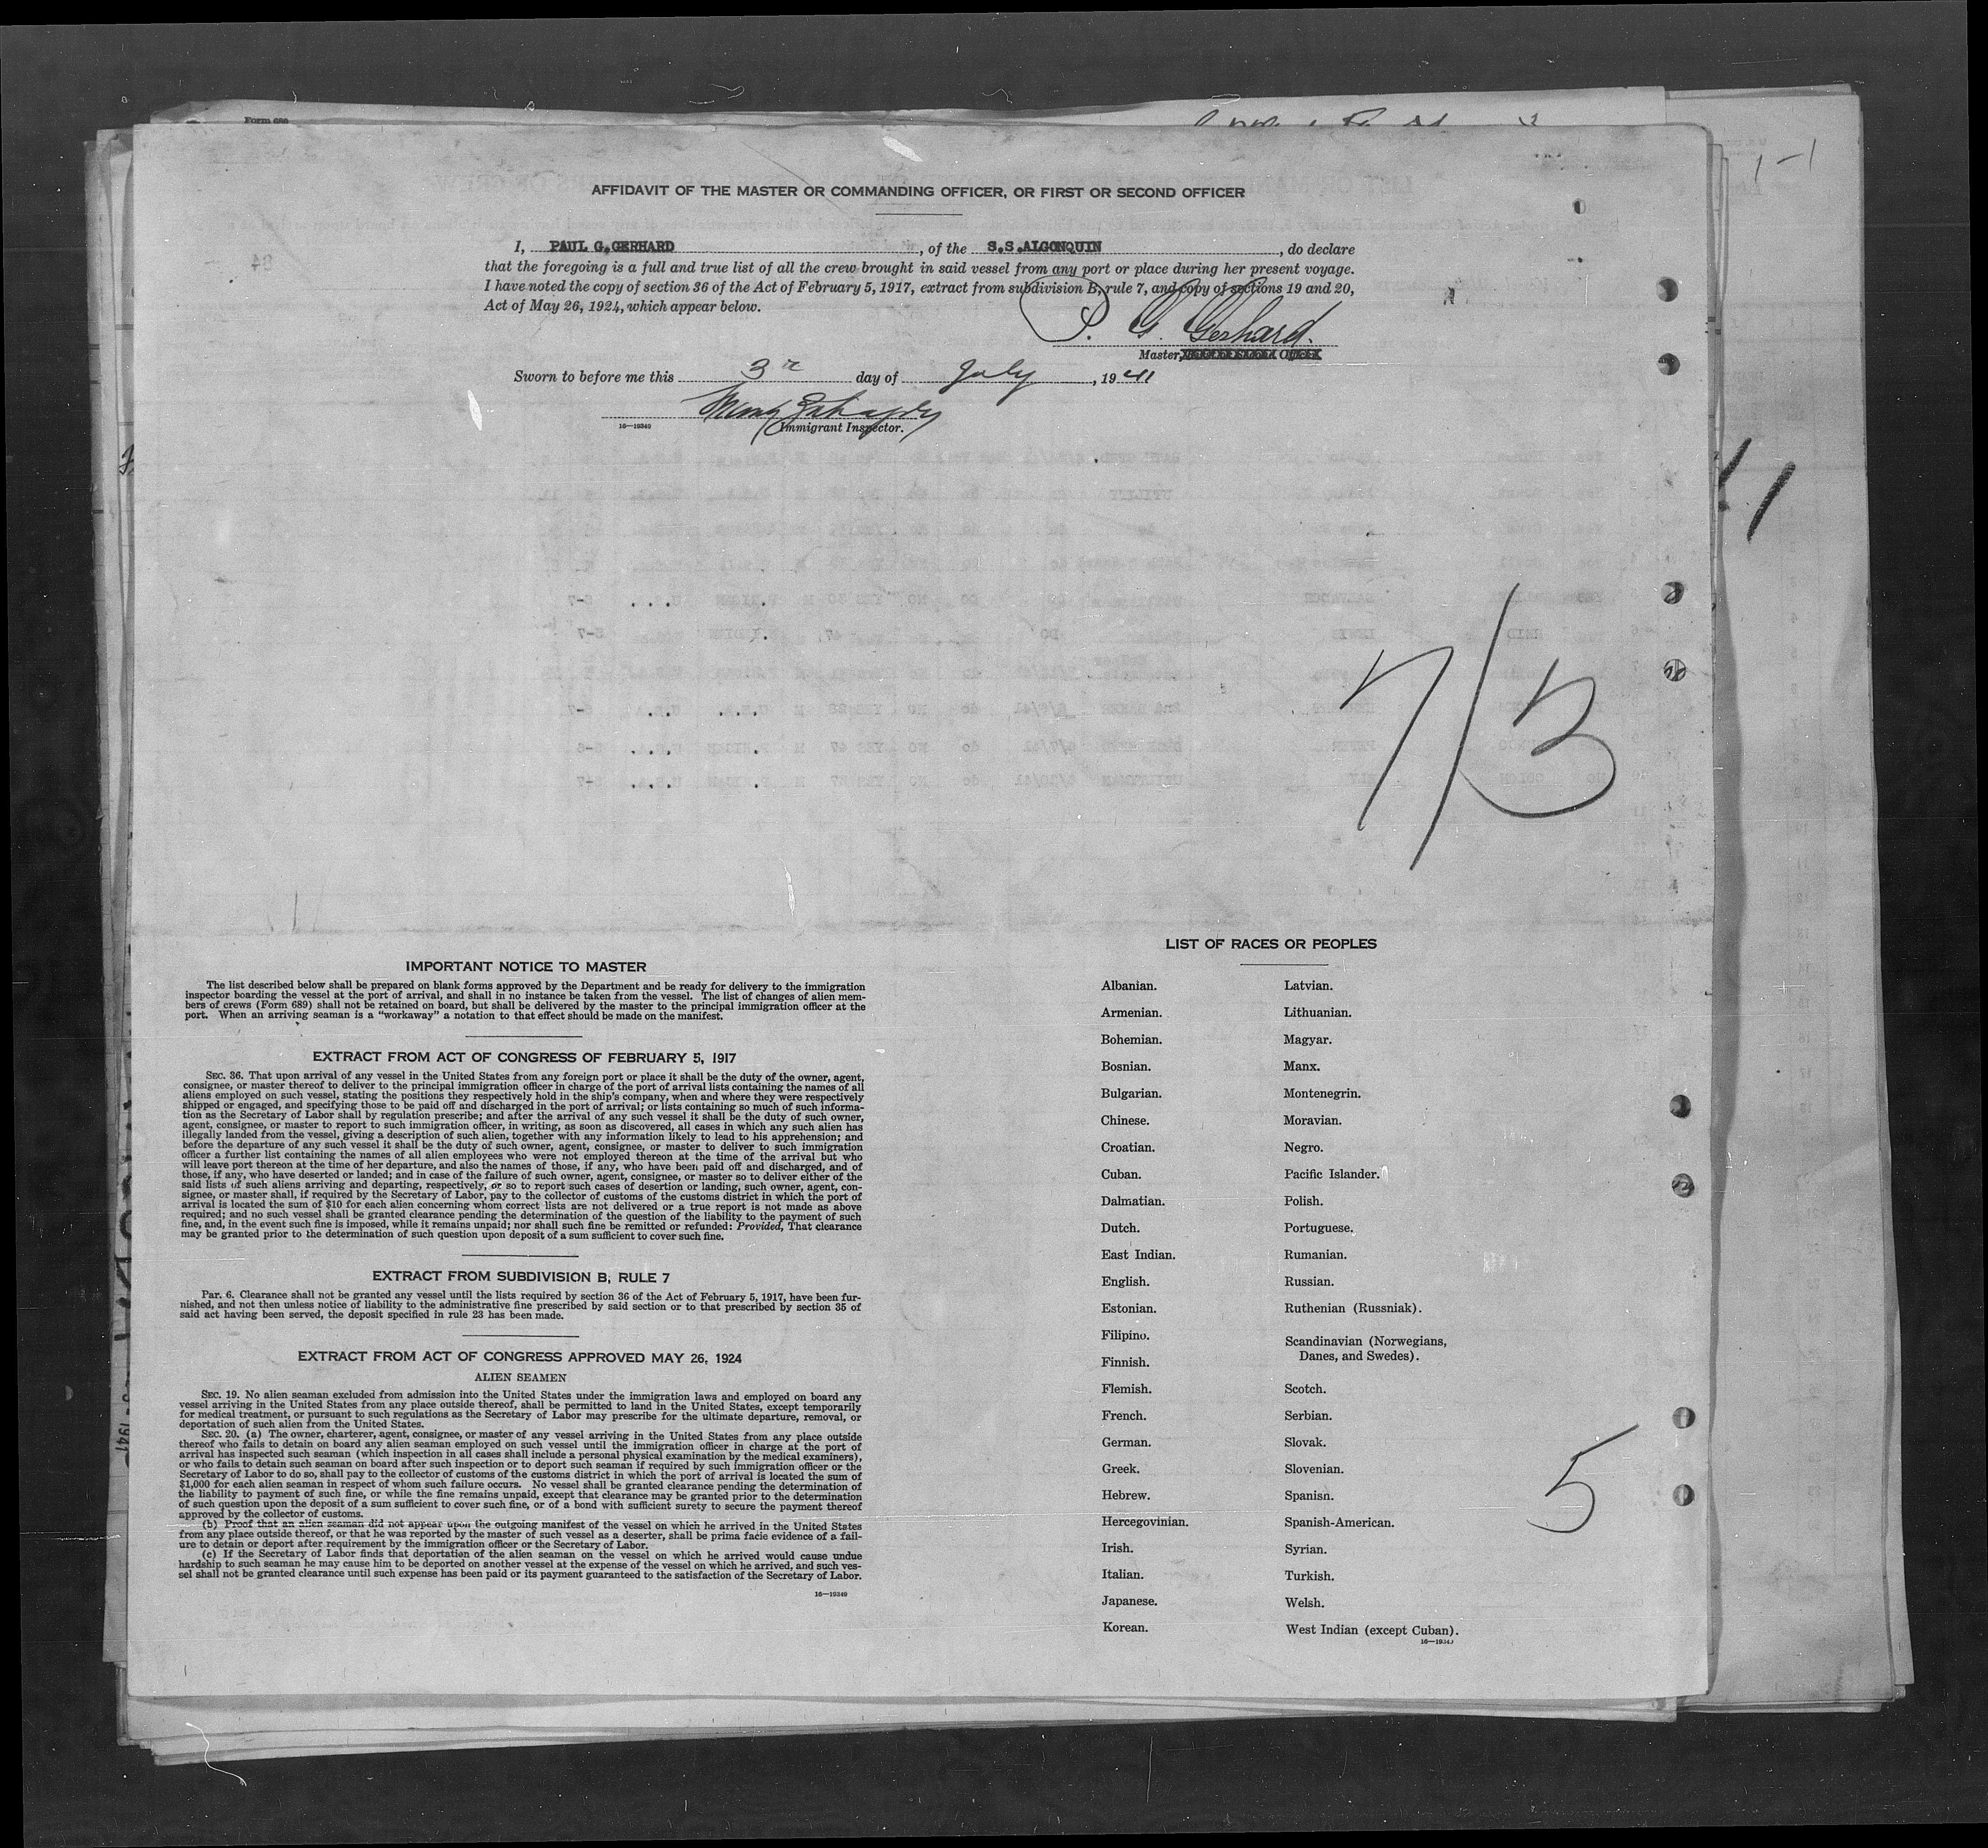 Form 689
AFFIDAVIT OF THE MASTER OR COMMANDING OFFICER, OR FIRST OR SECOND OFFICER
I, PAUL G. GERHARD, of the S.S. ALGONQUIN, do declare
that the foregoing is a full and true list of all the crew brought in said vessel from any port or place during her present voyage.
I have noted the copy of section 36 of the Act of February 5, 1917, extract from subdivision B, rule 7, and copy of sections 19 and 20,
Act of May 26, 1924, which appear below.
P. G. Gerhard.
Master,
Sworn to before me this 3rd day of July, 1941
16—19349
Immigrant Inspector.
7/3
IMPORTANT NOTICE TO MASTER
The list described below shall be prepared on blank forms approved by the Department and be ready for delivery to the immigration
inspector boarding the vessel at the port of arrival, and shall in no instance be taken from the vessel. The list of changes of alien mem-
bers of crews (Form 689) shall not be retained on board, but shall be delivered by the master to the principal immigration officer at the
port. When an arriving seaman is a "workaway" a notation to that effect should be made on the manifest.
EXTRACT FROM ACT OF CONGRESS OF FEBRUARY 5, 1917
SEC. 36. That upon arrival of any vessel in the United States from any foreign port or place it shall be the duty of the owner, agent,
consignee, or master thereof to deliver to the principal immigration officer in charge of the port of arrival lists containing the names of all
aliens employed on such vessel, stating the positions they respectively hold in the ship's company, when and where they were respectively
shipped or engaged, and specifying those to be paid off and discharged in the port of arrival; or lists containing so much of such informa-
tion as the Secretary of Labor shall by regulation prescribe; and after the arrival of any such vessel it shall be the duty of such owner,
agent, consignee, or master to report to such immigration officer, in writing, as soon as discovered, all cases in which any such alien has
illegally landed from the vessel, giving a description of such alien, together with any information likely to lead to his apprehension; and
before the departure of any such vessel it shall be the duty of such owner, agent, consignee, or master to deliver to such immigration
officer a further list containing the names of all alien employees who were not employed thereon at the time of the arrival but who
will leave port thereon at the time of her departure, and also the names of those, if any, who have been paid off and discharged, and of
those, if any, who have deserted or landed; and in case of the failure of such owner, agent, consignee, or master so to deliver either of the
said lists of such aliens arriving and departing, respectively, or so to report such cases of desertion or landing, such owner, agent, con-
signee, or master, shall, if required by the Secretary of Labor, pay to the collector of customs of the customs district in which the port of
arrival is located the sum of $10 for each alien concerning whom correct lists are not delivered or a true report is not made as above
required; and no such vessel shall be granted clearance pending the determination of the question of the liability to the payment of such
fine, and, in the event such fine is imposed, while it remains unpaid; nor shall such fine be remitted or refunded: Provided, That clearance
may be granted prior to the determination of such question upon deposit of a sum sufficient to cover such fine.
EXTRACT FROM SUBDIVISION B, RULE 7
Par. 6. Clearance shall not be granted any vessel until the lists required by section 36 of the Act of February 5, 1917, have been fur-
nished, and not then unless notice of liability to the administrative fine prescribed by said section or to that prescribed by section 35 of
said act having been served, the deposit specified in rule 23 has been made.
EXTRACT FROM ACT OF CONGRESS APPROVED MAY 26, 1924
ALIEN SEAMEN
SEC. 19. No alien seaman excluded from admission into the United States under the immigration laws and employed on board any
vessel arriving in the United States from any place outside thereof, shall be permitted to land in the United States, except temporarily
for medical treatment, or pursuant to such regulations as the Secretary of Labor may prescribe for the ultimate departure, removal, or
deportation of such alien from the United States.
SEC. 20. (a) The owner, charterer, agent, consignee, or master of any vessel arriving in the United States from any place outside
thereof who fails to detain on board any alien seaman employed on such vessel until the immigration officer in charge at the port of
arrival has inspected such seaman (which inspection in all cases shall include a personal physical examination by the medical examiners),
or who fails to detain such seaman on board after such inspection or to deport such seaman if required by such immigration officer or the
Secretary of Labor to do so, shall pay to the collector of customs of the customs district in which the port of arrival is located the sum of
$1,000 for each alien seaman in respect of whom such failure occurs. No vessel shall be granted clearance pending the determination of
the liability to payment of such fine, or while the fine remains unpaid, except that clearance may be granted prior to the determination
of such question upon the deposit of a sum sufficient to cover such fine, or of a bond with sufficient surety to secure the payment thereof
approved by the collector of customs.
(b) Proof that an alien seaman did not appear upon the outgoing manifest of the vessel on which he arrived in the United States
from any place outside thereof, or that he was reported by the master of such vessel as a deserter, shall be prima facie evidence of a fail-
ure to detain or deport after requirement by the immigration officer or the Secretary of Labor.
(c) If the Secretary of Labor finds that deportation of the alien seaman on the vessel on which he arrived would cause undue
hardship to such seaman he may cause him to be deported on another vessel at the expense of the vessel on which he arrived, and such ves-
sel shall not be granted clearance until such expense has been paid or its payment guaranteed to the satisfaction of the Secretary of Labor.
16—19349
LIST OF RACES OR PEOPLES
Albanian.
Armenian.
Bohemian.
Bosnian.
Bulgarian.
Chinese.
Croatian.
Cuban.
Dalmatian.
Dutch.
East Indian.
English.
Estonian.
Filipino.
Finnish.
Flemish.
French.
German.
Greek.
Hebrew.
Hercegovinian.
Irish.
Italian.
Japanese.
Korean.
Latvian.
Lithuanian.
Magyar.
Manx.
Montenegrin.
Moravian.
Negro.
Pacific Islander.
Polish.
Portuguese.
Rumanian.
Russian.
Ruthenian (Russniak).
Scandinavian (Norwegians,
Danes, and Swedes).
Scotch.
Serbian.
Slovak.
Slovenian.
Spanish.
Spanish-American.
Syrian.
Turkish.
Welsh.
West Indian (except Cuban).
16—19349
5